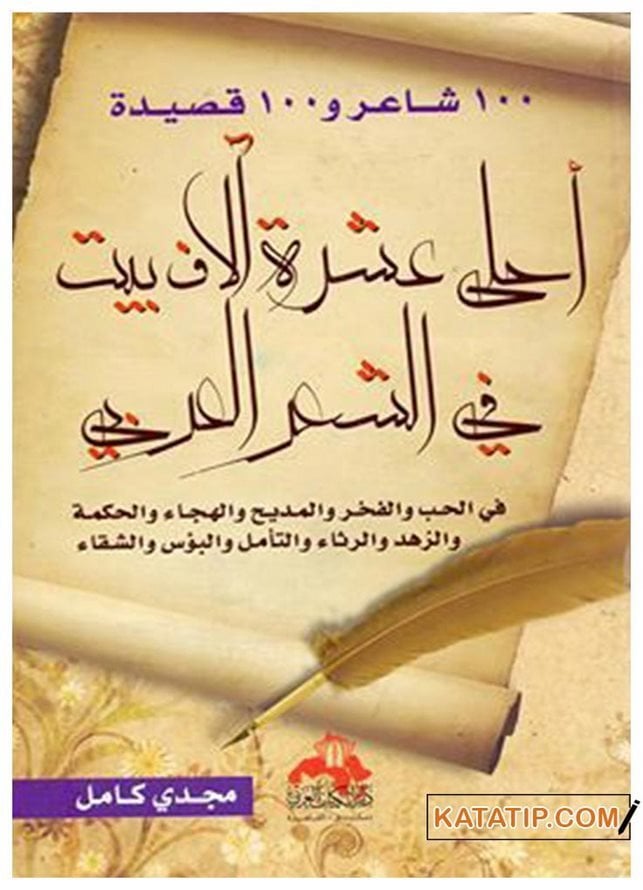 ١٠٠ شاعر و ١٠٠ قصيدة
أحلى عشرة آلاف بيت
في الشعر العربي
في الحب والفخر والمديح والهجاء والحكمة
والزهد والرثاء والتأمل والبؤس والشقاء
دار الكتاب العربي
مجدي كامل
KATATIP.COM